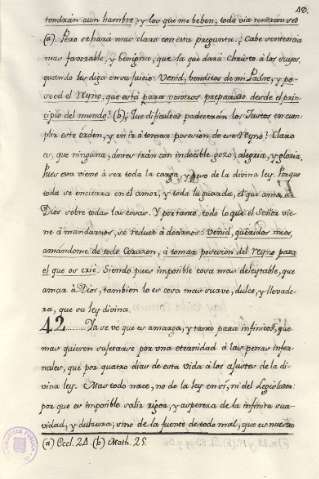 40.
tendràn aun hambre; y los que me beben, todavia tendran sed
(a). Pero se harà mas claro con esta pregunta. ¿Cabe sentencia
mas favorable, y benigna, que la que darà Christo à los suyos,
quando les diga en su juicio: Venid, benditos de mi Padre, y po-
seed el Reyno, que està para vosotros preparado desde el prin-
cipio del mundo? (b). Que dificultad padeceràn los Justos en cum-
plir este orden, y en ir à tomar posesion de ese Reyno? Claro
es, que ninguna; antes iràn con indecible gozo, alegria, y gloria.
Pues esa viene à ser toda la carga, y peso de la divina ley. Porque
toda se encierra en el amor, y toda la guarda, el que ama à
Dios sobre todas las cosas. Y por tanto, todo lo que el Señor vie-
ne à mandarnos, se reduce à decirnos: Venid, queridos mios,
amandome de todo Corazon, à tomar posesion del Reyno para
el que os criè. Siendo pues imposible cosa mas deleytable, que
amar à Dios, tambien lo es cosa mas suave, dulce, y llevade-
ra, que su ley divina.
42 Ya se ve que es amarga, y tanto para infinitos, que
mas quieren sujetarse por una eternidad à las penas infer-
nales, que por quatro dias de esta vida à los ajustes de la di-
vina ley. Mas todo nace, no de la ley en sì, ni del Legislador:
por que es imposible salir agror, y aspereza de la infinita sua-
vidad, y dulzura; sino de la fuente de todo mal, que es nuestro
(a) Eccl. 24. (b) Math. 25.